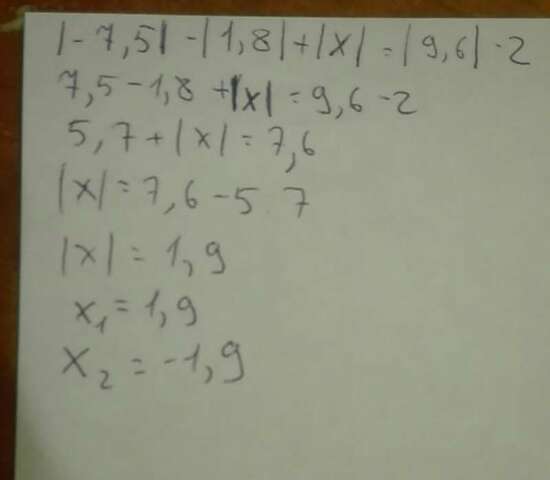 |-7,5| -|1,8|+|x| = |9,6| -2
7,5-1,8 +|x| = 9,6 -2
5,7+|x| = 7,6
|x| = 7,6 -5 7
|x| = 1,9
x₁ = 1,9
x₂ = -1,9